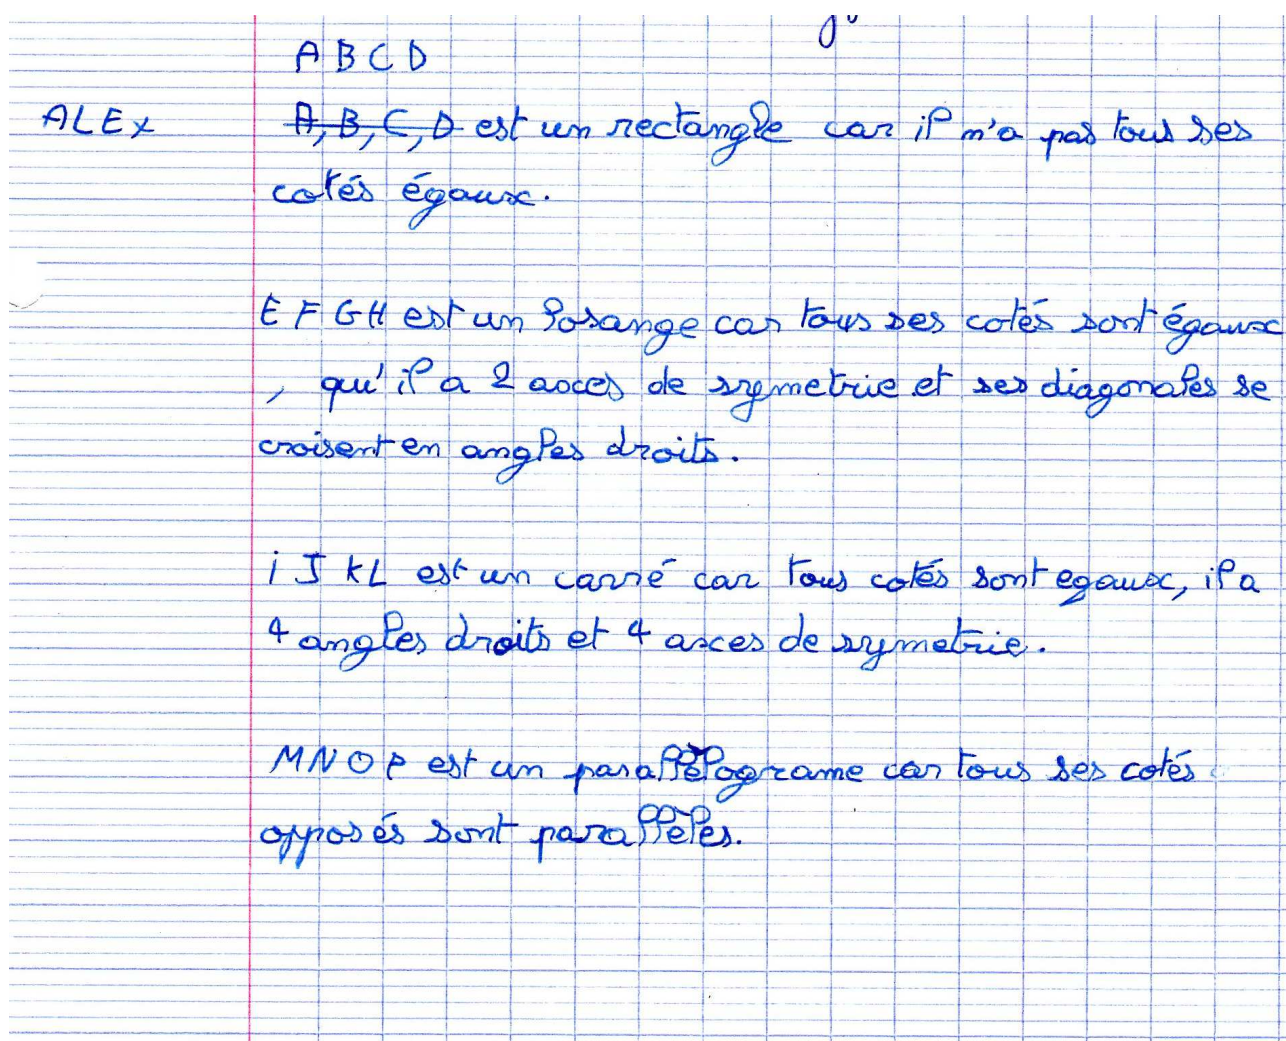 A B C D
ALEX A, B, C, D est un rectangle car il n'a pas tous ses
cotés égaux.
E F G H est un losange car tous ses cotés sont égaux
, qu'il a 2 axces de symetrie et ses diagonales se
croisent en angles droits.
i J K L est un carré car tous cotés sont egaux, il a
4 angles droits et 4 axces de symetrie.
M N O P est un parallélograme car tous ses cotés
opposés sont parallèles.